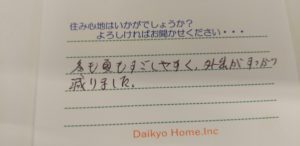 住み心地はいかがでしょうか？
よろしければお聞かせください・・・
も すごしやすく、外気が
減りました。
Daikyo Home.Inc